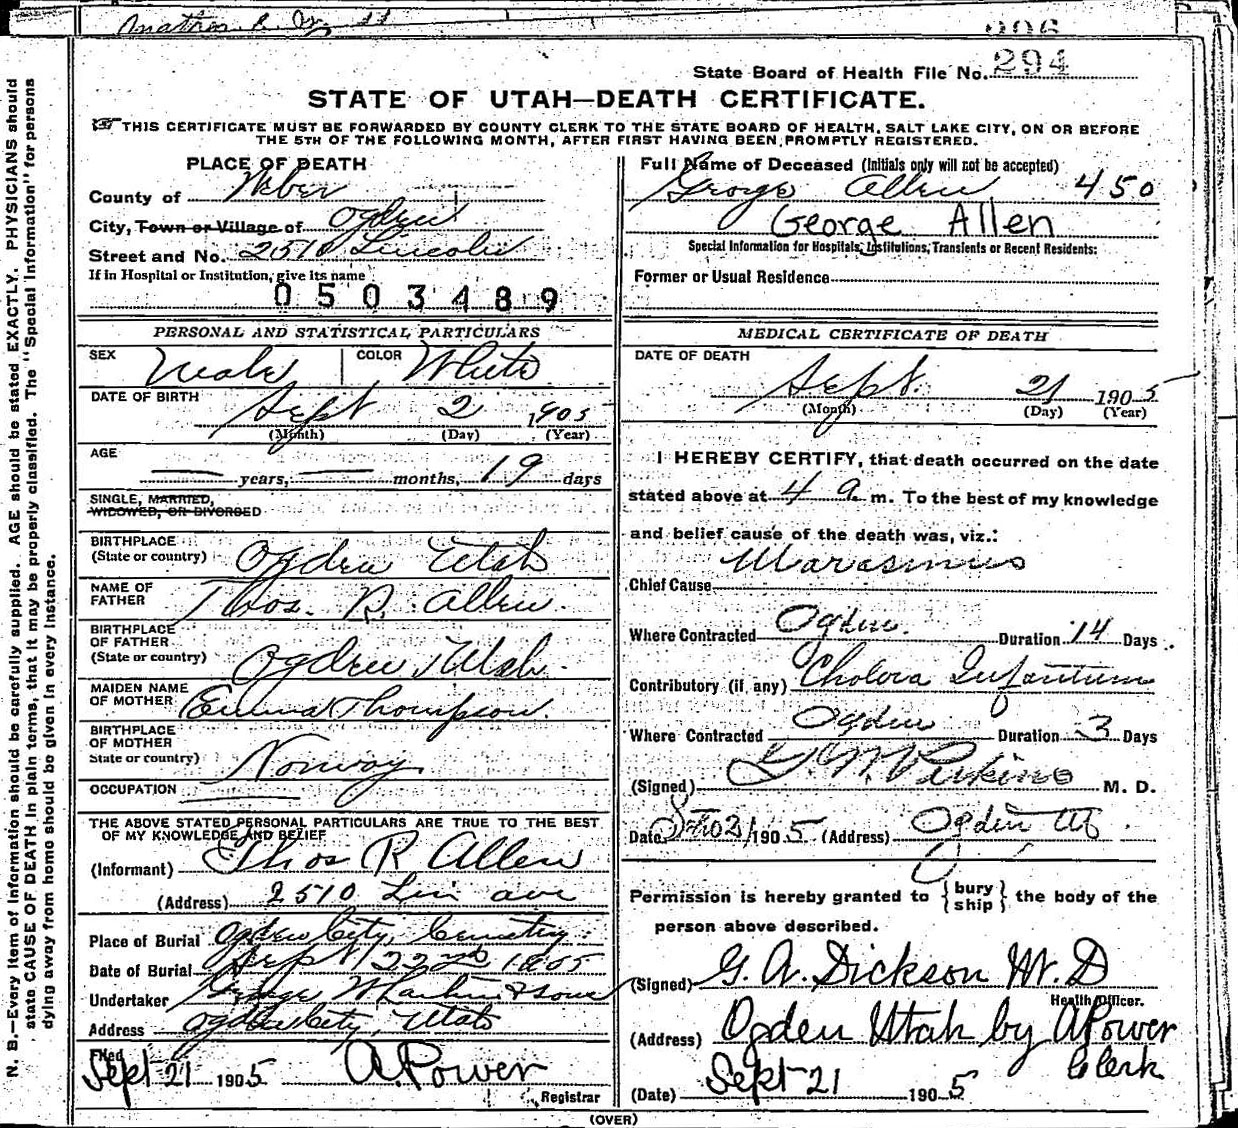 906
State Board of Health File No. 294
STATE OF UTAH—DEATH CERTIFICATE.
THIS CERTIFICATE MUST BE FORWARDED BY COUNTY CLERK TO THE STATE BOARD OF HEALTH, SALT LAKE CITY, ON OR BEFORE
THE 5TH OF THE FOLLOWING MONTH, AFTER FIRST HAVING BEEN PROMPTLY REGISTERED.
PLACE OF DEATH
County of Weber
City, Town or Village of Ogden
Street and No. 2510 Lincoln
If in Hospital or Institution, give its name
0503489
PERSONAL AND STATISTICAL PARTICULARS
SEX Male COLOR White
DATE OF BIRTH
Sept 2 1905
(Month) (Day) (Year)
AGE
years, months, 19 days
SINGLE, MARRIED,
WIDOWED, OR DIVORCED
BIRTHPLACE
(State or country) Ogden Utah
NAME OF
FATHER Thos. R. Allen.
BIRTHPLACE
OF FATHER
(State or country) Ogden Utah.
MAIDEN NAME
OF MOTHER Emma Thompson.
BIRTHPLACE
OF MOTHER
State or country) Norway
OCCUPATION
THE ABOVE STATED PERSONAL PARTICULARS ARE TRUE TO THE BEST
OF MY KNOWLEDGE AND BELIEF
(Informant) Thos R Allen
(Address) 2510 Lin ave
Place of Burial Ogden City Cemetery.
Date of Burial Sept 22nd 1905
Undertaker George
Address Ogden City, Utah
Filed
Sept 21 1905 A. Power
Registrar
Full Name of Deceased (Initials only will not be accepted)
George Allen 450
George Allen
Special Information for Hospitals, Institutions, Transients or Recent Residents:
Former or Usual Residence
MEDICAL CERTIFICATE OF DEATH
DATE OF DEATH
Sept. 21 1905
(Month) (Day) (Year)
I HEREBY CERTIFY, that death occurred on the date
stated above at 4 a m. To the best of my knowledge
and belief cause of the death was, viz.:
Chief Cause Marasmus
Where Contracted Ogden. Duration 14 Days
Contributory (if any) Cholera Infantum
Where Contracted Ogden Duration 3 Days
(Signed) Perkins M. D.
Date 1905 (Address) Ogden Ut.
Permission is hereby granted to {bury ship} the body of the
person above described.
(Signed) G. A. Dickson M. D
Health Officer.
(Address) Ogden Utah by A Power
Clerk
(Date) Sept 21 1905
(OVER)
N. B.—Every item of information should be carefully supplied. AGE should be stated EXACTLY. PHYSICIANS should
state CAUSE OF DEATH in plain terms, that it may be properly classified. The "Special Information" for persons
dying away from home should be given in every instance.